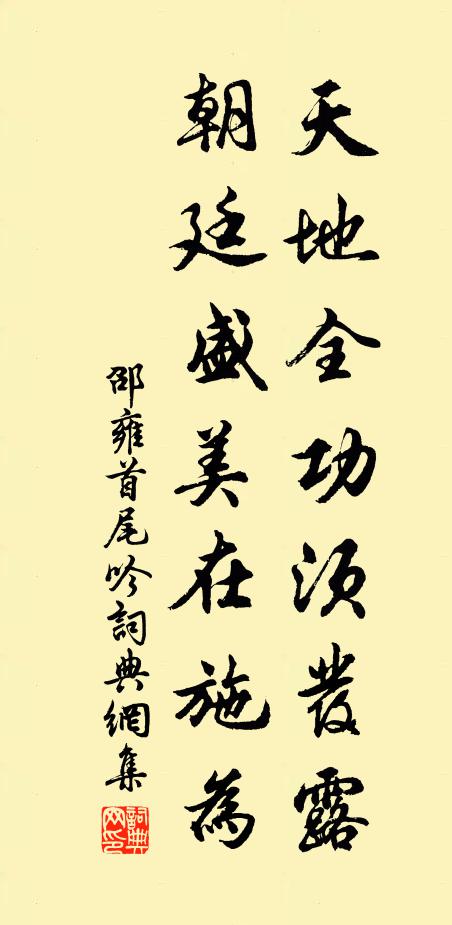 天地全功須發露
朝廷盛美在施為
邵雍首尾吟詞典網集
詞典網印